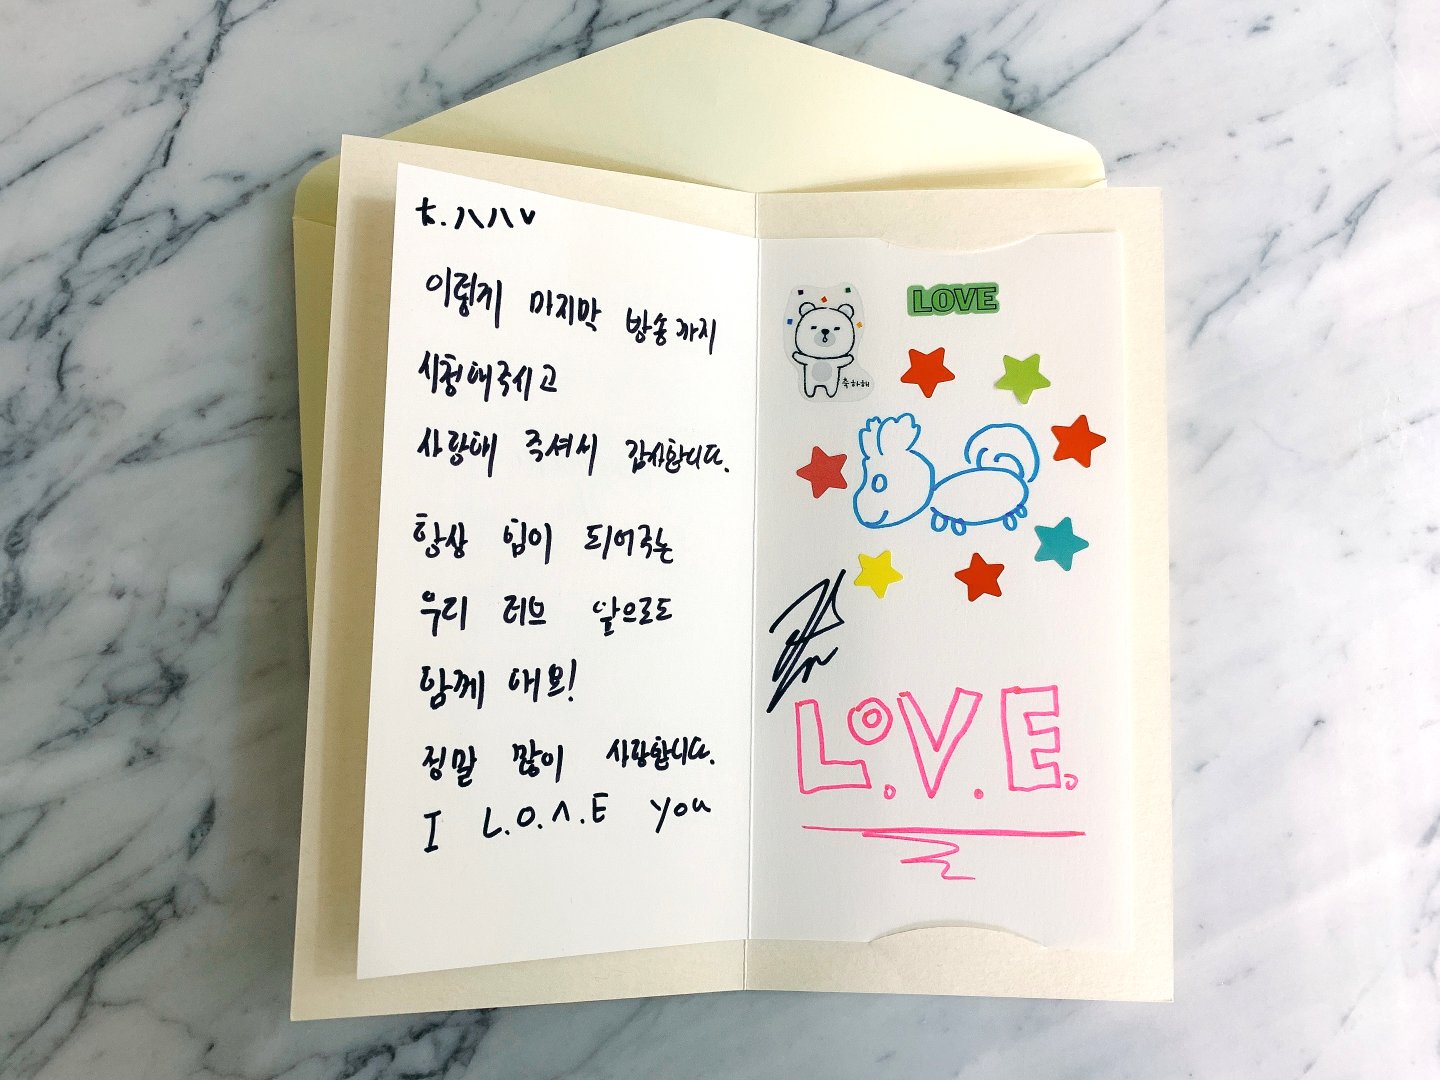 이렇게 마지막 방송까지
시청해주시고
사랑해 주셔서 감사합니다.
항상 힘이 되어주는
우리 러브 앞으로도
함께 해요!
정말 많이 사랑합니다.
I L.O.Λ.E you
LOVE
축하해
L.O.V.E.